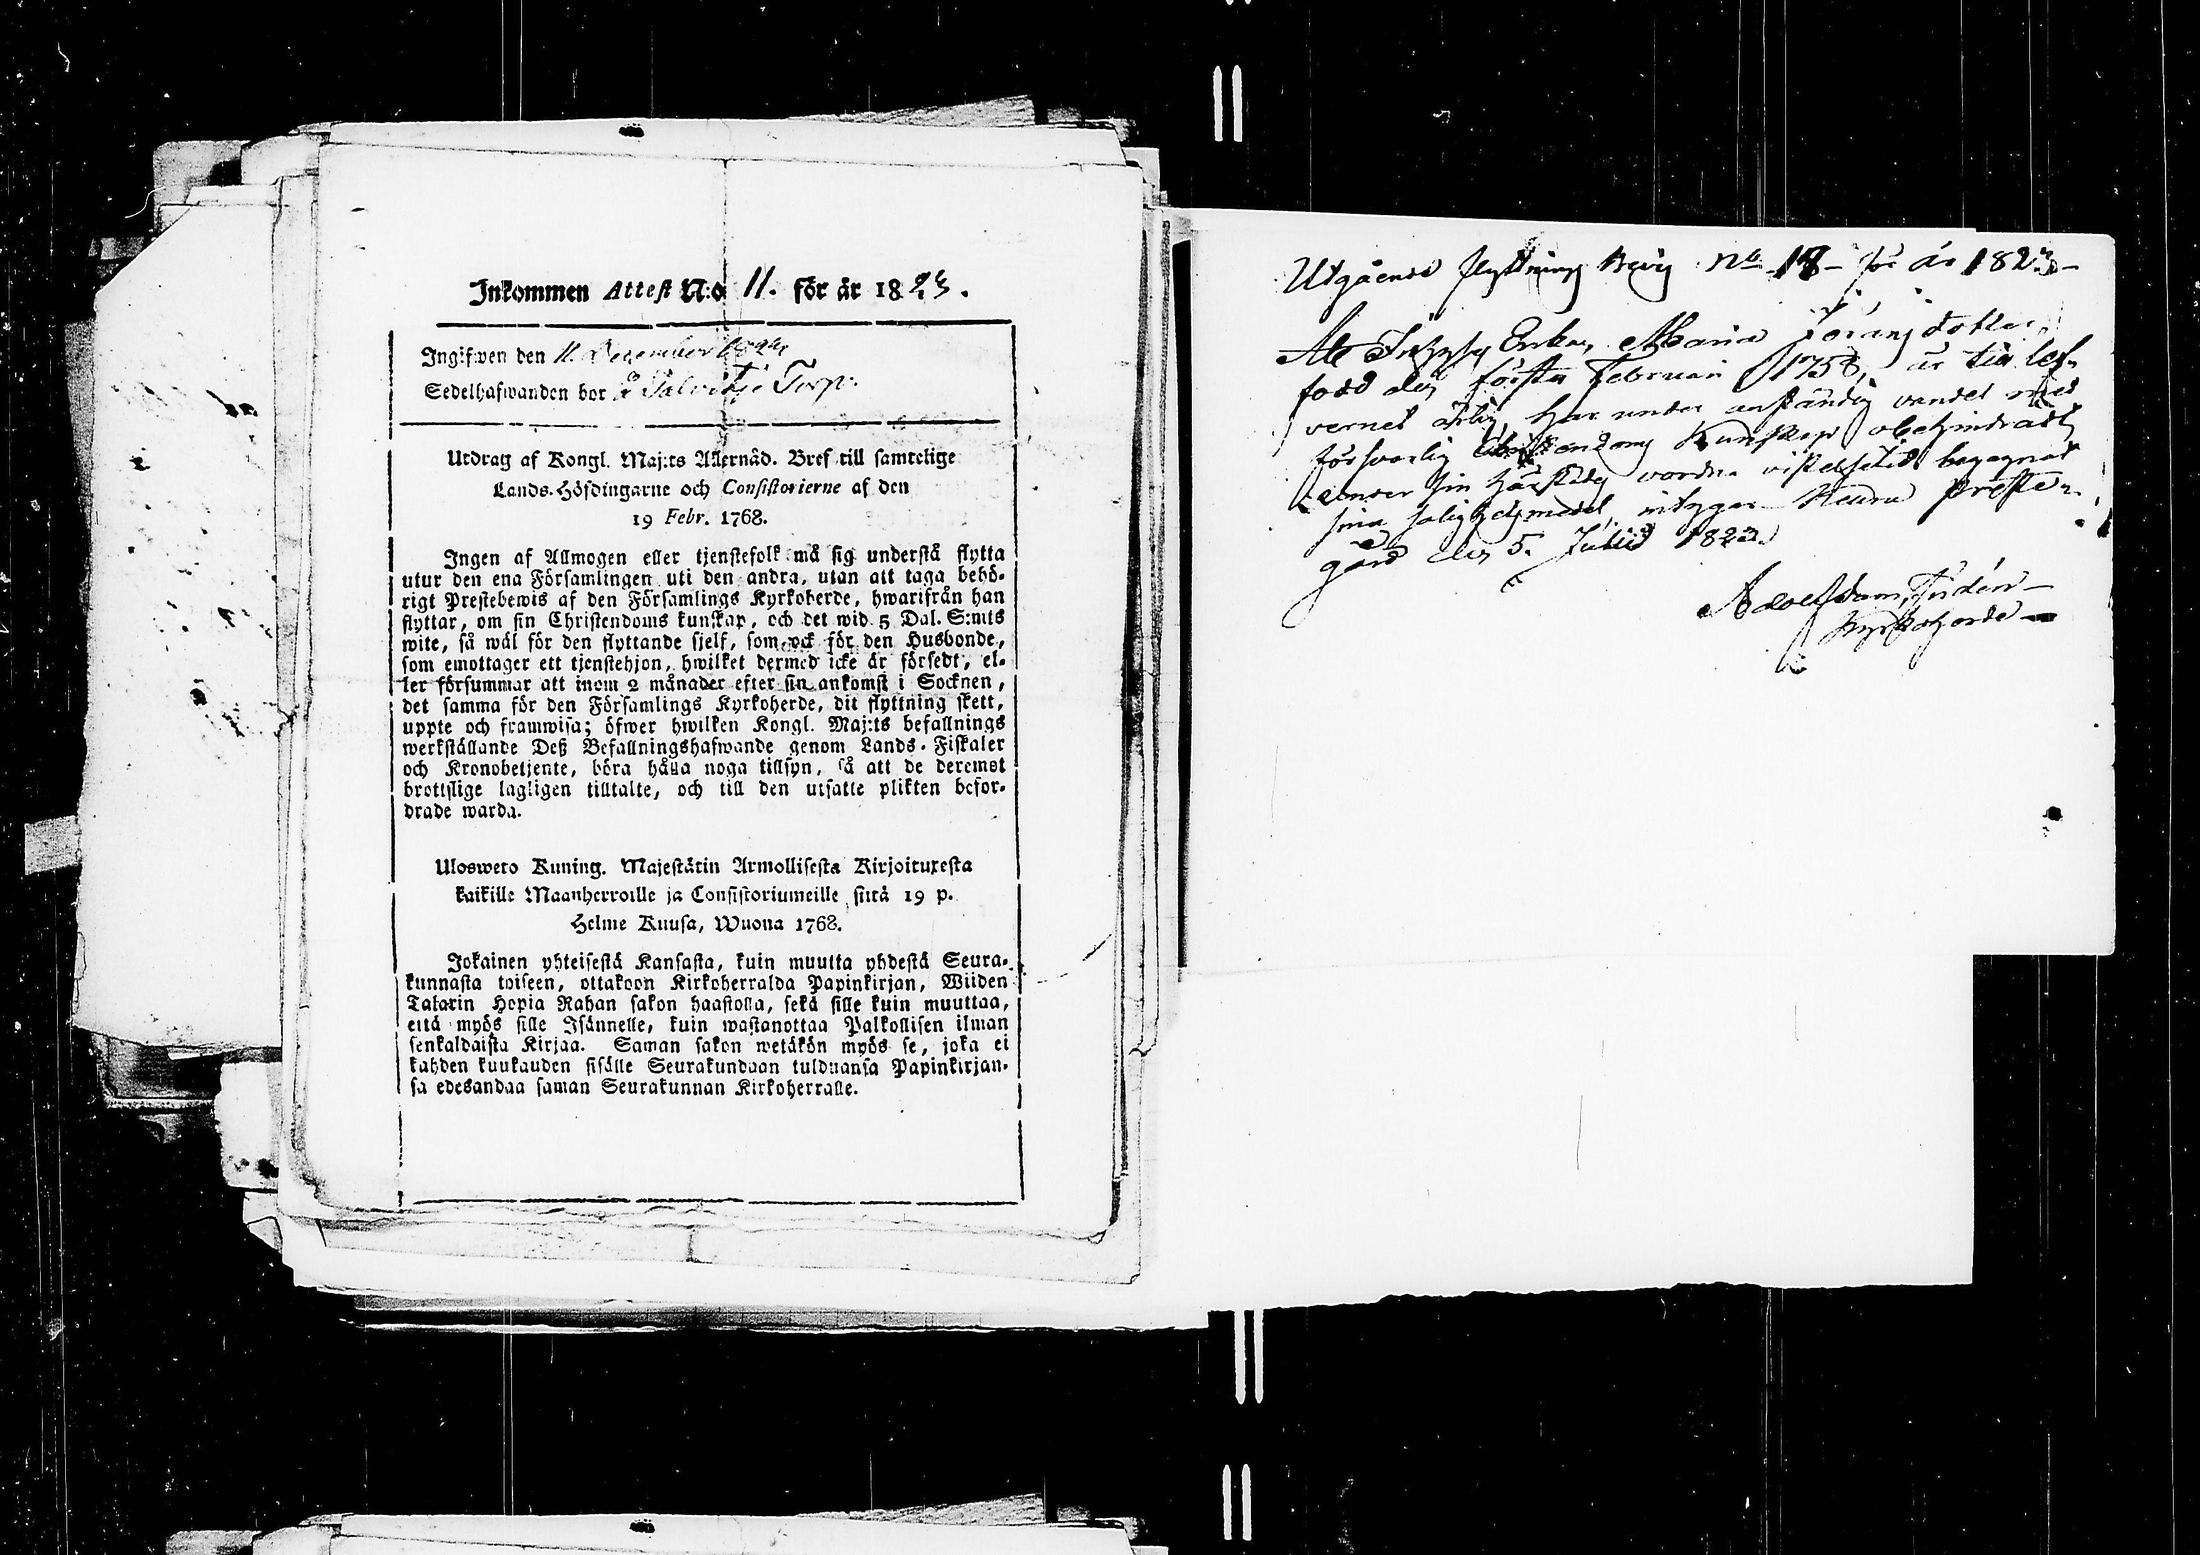 Inkommen Attest N:o 11. för år 1823.
Ingifwen den 11 December
Sedelhafwanden bor å Salvitje Torp.
Utdrag af Kongl. Maj:ts Allernåd. Bref till samtelige
Lands-Höfdingarne och Consistorierne af den
19 Febr. 1768.
Ingen af Allmogen eller tjenstefolk må sig understå flytta
utur den ena Församlingen uti den andra, utan att taga behö-
rigt Prestebewis af den Församlings Kyrkoherde, hwarifrån han
flyttar, om sin Christendoms kunskap, och det wid 5 Dal. S:mts
wite, så wäl för den flyttande sjelf, som ock för den Husbonde,
som emottager ett tjenstehjon, hwilket dermed icke är försedt, el-
ler försummar att inom 2 månader efter sin ankomst i Socknen,
det samma för den Församlings Kyrkoherde, dit flyttning skett,
uppte och framwisa; öfwer hwilken Kongl. Maj:ts befallnings
werkställande Deß Befallningshafwande genom Lands-Fiskaler
och Kronobetjente, böra hålla noga tillsyn, så att de deremot
brottslige lagligen tilltalte, och till den utsatte plikten befor-
drade warda.
Ulosweto Kuning. Majestätin Armollisesta Kirjoituxesta
kaikille Maanherroille ja Consistoriumeille siitä 19 p.
Helme Kuusa, Wuona 1768.
Jokainen yhteisestä Kansasta, kuin muutta yhdestä Seura-
kunnasta toiseen, ottakoon Kirkoherralda Papinkirjan, Wiiden
Talarin Hopia Rahan sakon haastolla, sekä sille kuin muuttaa,
että myös sille Isännelle, kuin wastanottaa Palkollisen ilman
senkaldaista Kirjaa. Saman sakon wetäkön myös se, joka ei
kahden kuukauden sisälle Seurakundaan tulduansa Papinkirjan-
sa edesandaa saman Seurakunnan Kirkoherralle.
Utgående flyttnings Bevis No 17 för år 1823
Att Enkan Maria Göransdotter
född den första Februari 1758, är till lef-
vernet ärlig, har under anständig vandel med
försvarlig Christendoms Kunskap obehindradt
under sin härstädes vistelsetid begagnat
sina salighetsmedel, intygar Keuru Preste-
gård den 5. Julii 1823
Tidén
Kyrkoherde